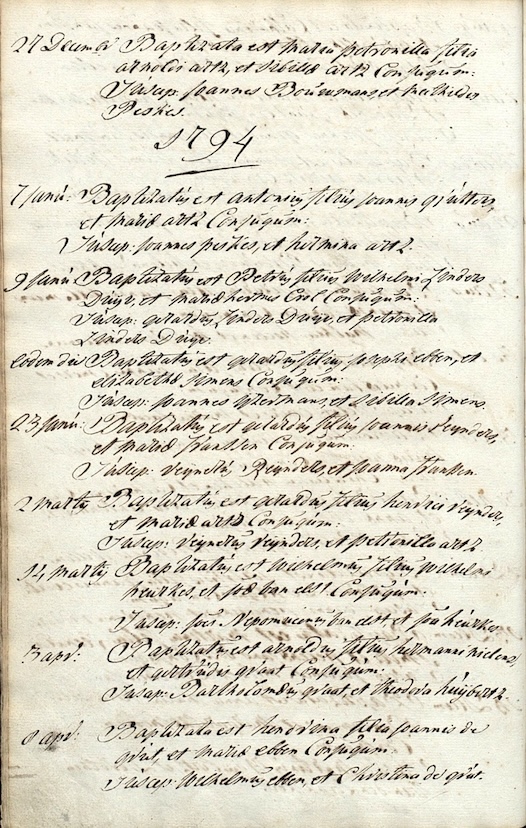 27 Decemb: Baptizata est maria petronilla filia
arnoldi artz, et sibillæ artz Conjugum:
Susęp: joannes Bouwmans, et mechtildis
Peskes.
1794
7 januı: Baptizatus est antonius filius joannis
et mariæ artz Conjugum:
Susęp: joannes peskes, et hermina artz.
9 januı: Baptizatus est Petrus filius Wilhelmi Linders
et mariæ Conjugum:
Susęp: gerardus Linders et petronilla
Linders
eodem die Baptizatus est gerardus filius josephi ebben, et
elizabethæ simens Conjugum:
Susęp: joannes et sibilla simens.
23 januı: Baptizatus est gerardus filius joannis reynders,
et mariæ franssen Conjugum:
Susęp: reynerus Reynders, et joanna franssen.
2 martij Baptizatus est gerardus filius henrici reynders,
et mariæ artz Conjugum:
Susęp: reynerus reynders, et petronilla artz
14 martij Baptizatus est Wilhelmus filius Wilhelmi
heurkes, et joæ van elst Conjugum:
Susęp: joes Nepomucenus van elst et joa heurkes
3 apr: Baptizatus est arnoldus filius hermanni
et gertrudis graat Conjugum:
Susęp: Bartholomæus graat et theodora huijbertz.
8 apr: Baptizata est hendrina filia joannis de
grut, et mariæ ebben Conjugum:
Suscep: Wilhelmus ebben, et Christina de grut.